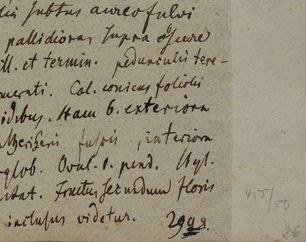 subtus aureofulvi
pallidiora, supra obscure
ill. et termin. pedunculis tere-
merati. Cal. conicus foliolis
Stam 6. exteriora
fulvis, interiora
glob. Ovul. 1. pend. Styl.
stat. Fructus secundum floris
inclusus videtur. 29
455/
50
26